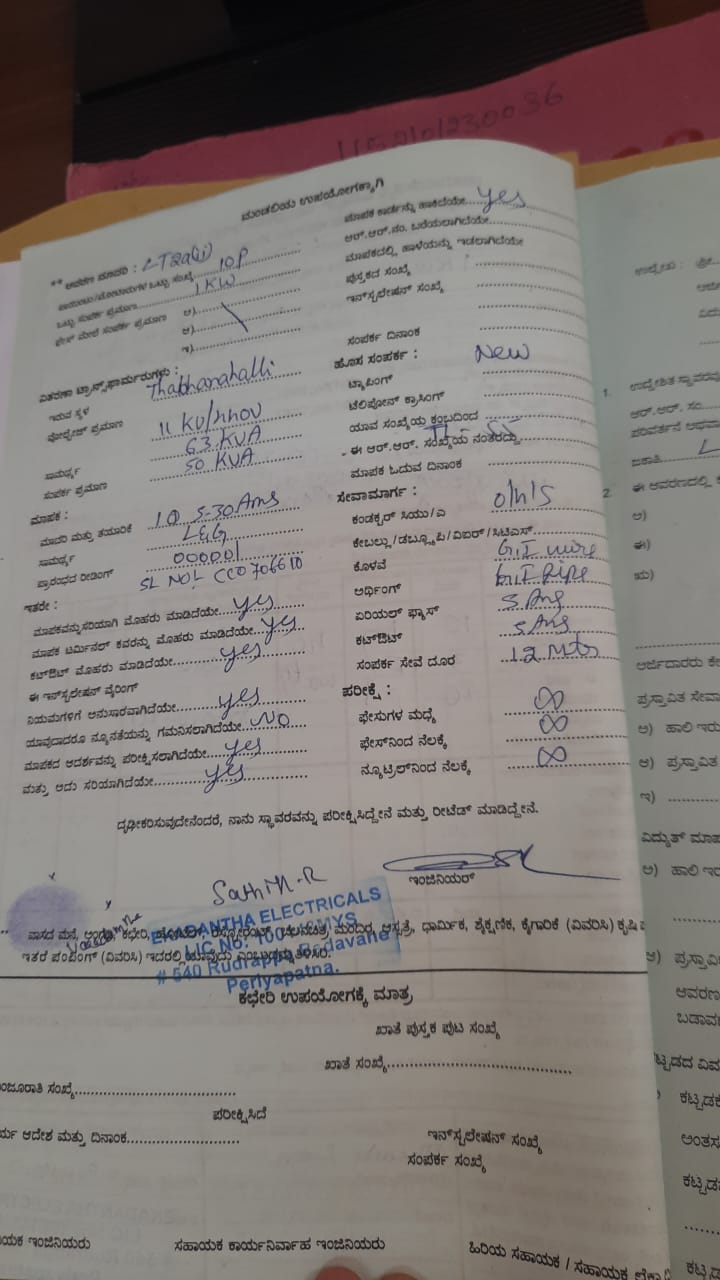 1152101230036
ಮಂಡಳಿಯ ಉಪಯೋಗಕ್ಕಾಗಿ
** ಆವರಣ ಮಾದರಿ : LT2a(i)
ಒಟ್ಟು ಸಂಖ್ಯೆ 10P
ಒಟ್ಟು ಸಂಪರ್ಕ ಪ್ರಮಾಣ 1KW
ಫೇಸ್ ಮೇಲೆ ಸಂಪರ್ಕ ಪ್ರಮಾಣ ಅ)
ಆ)
ಇ)
ವಿತರಣಾ ಟ್ರಾನ್ಸ್‌ಫಾರ್ಮರುಗಳು :
ಇರುವ ಸ್ಥಳ Thabhanahalli
ವೋಲ್ಟೇಜ್ ಪ್ರಮಾಣ 11 KV/
63 KVA
ಸಾಮರ್ಥ್ಯ 50 KVA
ಸಂಪರ್ಕ ಪ್ರಮಾಣ
ಮಾಪಕ :
ಮಾದರಿ ಮತ್ತು ತಯಾರಿಕೆ 1Ø 5-30 Ams
ಸಾಮರ್ಥ್ಯ L&G
ಪ್ರಾರಂಭದ ರೀಡಿಂಗ್ 000001
SL NO:
ಇತರೇ :
ಮಾಪಕವನ್ನು ಸರಿಯಾಗಿ ಮೊಹರು ಮಾಡಿದೆಯೇ yes
ಮಾಪಕ ಟರ್ಮಿನಲ್ ಕವರನ್ನು ಮೊಹರು ಮಾಡಿದೆಯೇ yes
ಕಟ್‌ಔಟ್ ಮೊಹರು ಮಾಡಿದೆಯೇ yes
ಈ ಇನ್‌ಸ್ಟಲೇಷನ್ ವೈರಿಂಗ್
ನಿಯಮಗಳಿಗೆ ಅನುಸಾರವಾಗಿದೆಯೇ yes
ಯಾವುದಾದರೂ ನ್ಯೂನತೆಯನ್ನು ಗಮನಿಸಲಾಗಿದೆಯೇ NO
ಮಾಪಕದ ಆದರ್ಶವನ್ನು ಪರೀಕ್ಷಿಸಲಾಗಿದೆಯೇ yes
ಮತ್ತು ಅದು ಸರಿಯಾಗಿದೆಯೇ yes
ಮಾಪಕ ಕಾರ್ಡನ್ನು ಹಾಕಿದೆಯೇ yes
ಆರ್.ಆರ್.ನಂ. ಬರೆಯಲಾಗಿದೆಯೇ
ಮಾಪಕದಲ್ಲಿ ಹಾಳೆಯನ್ನು ಇಡಲಾಗಿದೆಯೇ
ಪುಸ್ತಕದ ಸಂಖ್ಯೆ
ಇನ್‌ಸ್ಟಲೇಷನ್ ಸಂಖ್ಯೆ
ಸಂಪರ್ಕ ದಿನಾಂಕ
ಹೊಸ ಸಂಪರ್ಕ : New
ಟ್ಯಾಪಿಂಗ್
ಟೆಲಿಪೋನ್ ಕ್ರಾಸಿಂಗ್
ಯಾವ ಸಂಖ್ಯೆಯ ಕಂಬದಿಂದ
ಈ ಆರ್.ಆರ್. ಸಂಖ್ಯೆಯ ನಂತರದ್ದು
ಮಾಪಕ ಓದುವ ದಿನಾಂಕ
ಸೇವಾಮಾರ್ಗ :
ಕಂಡಕ್ಟರ್ ಸಿಯು/ಎ o/h/s
ಕೇಬಲ್ಲು/ಡಬ್ಲ್ಯೂಪಿ/ವಿಐರ್/ಸಿಟಿಎಸ್
ಕೊಳವೆ G.I wire
ಆರ್ಥಿಂಗ್ G.I Pipe
ಏರಿಯಲ್ ಫ್ಯೂಸ್ 5 Amg
ಕಟ್‌ಔಟ್ 5 Amg
ಸಂಪರ್ಕ ಸೇವೆ ದೂರ 12 Mts
ಪರೀಕ್ಷೆ :
ಫೇಸುಗಳ ಮಧ್ಯೆ ∞
ಫೇಸ್‌ನಿಂದ ನೆಲಕ್ಕೆ ∞
ನ್ಯೂಟ್ರಲ್‌ನಿಂದ ನೆಲಕ್ಕೆ ∞
ದೃಢೀಕರಿಸುವುದೇನೆಂದರೆ, ನಾನು ಸ್ಥಾವರವನ್ನು ಪರೀಕ್ಷಿಸಿದ್ದೇನೆ ಮತ್ತು ರೀಟೆಡ್ ಮಾಡಿದ್ದೇನೆ.
Sathi M.R
ಇಂಜಿನಿಯರ್
EKADANTHA ELECTRICALS
LIC No.
# 540 Rudrappa Badavane
Periyapatna.
** ವಾಸದ ಮನೆ, ಅಂಗಡಿ, ಕಛೇರಿ, ಹೋಟೆಲ್, ರೆಸ್ಟೋರೆಂಟ್, ಚಲನಚಿತ್ರ ಮಂದಿರ, ಆಸ್ಪತ್ರೆ, ಧಾರ್ಮಿಕ, ಶೈಕ್ಷಣಿಕ, ಕೈಗಾರಿಕೆ (ವಿವರಿಸಿ) ಕೃಷಿ
ಇತರೆ ಪಂಪಿಂಗ್ (ವಿವರಿಸಿ) ಇದರಲ್ಲಿ ಯಾವುದು ಎಂಬುದನ್ನು ತಿಳಿಸಿರಿ.
ಕಛೇರಿ ಉಪಯೋಗಕ್ಕೆ ಮಾತ್ರ
ಖಾತೆ ಪುಸ್ತಕ ಪುಟ ಸಂಖ್ಯೆ
ಖಾತೆ ಸಂಖ್ಯೆ
ಂಜೂರಾತಿ ಸಂಖ್ಯೆ
ಪರೀಕ್ಷಿಸಿದೆ
ರ್ಯ ಆದೇಶ ಮತ್ತು ದಿನಾಂಕ
ಇನ್‌ಸ್ಟಲೇಷನ್ ಸಂಖ್ಯೆ
ಸಂಪರ್ಕ ಸಂಖ್ಯೆ
ಯಕ ಇಂಜಿನಿಯರು
ಸಹಾಯಕ ಕಾರ್ಯನಿರ್ವಾಹ ಇಂಜಿನಿಯರು
ಹಿರಿಯ ಸಹಾಯಕ / ಸಹಾಯಕ
ಉದ್ದೇಶ : ಶ್ರೀ
1. ಉದ್ದೇಶಿತ ಸ್ಥಾವರ
ಆರ್.ಆರ್. ಸಂ.
ಜಕಾತಿ
2. ಈ ಆವರಣದಲ್ಲಿ
ಅ)
ಈ)
ಋ)
ಅರ್ಜಿದಾರರು ಕೇ
ಪ್ರಸ್ತಾವಿತ ಸೇವಾ
ಅ) ಹಾಲಿ ಇರು
ಆ) ಪ್ರಸ್ತಾವಿತ
ಇ)
ವಿದ್ಯುತ್ ಮಾಪ
ಅ) ಹಾಲಿ ಇರ
ಆ) ಪ್ರಸ್ತಾವಿ
ಆವರಣ
ಬಡಾವ
ಟ್ಟಡದ ವಿವ
ಕಟ್ಟಡಕ
ಅಂತಸ
ಕಟ್ಟಡ
ಕಟ್ಟಡ